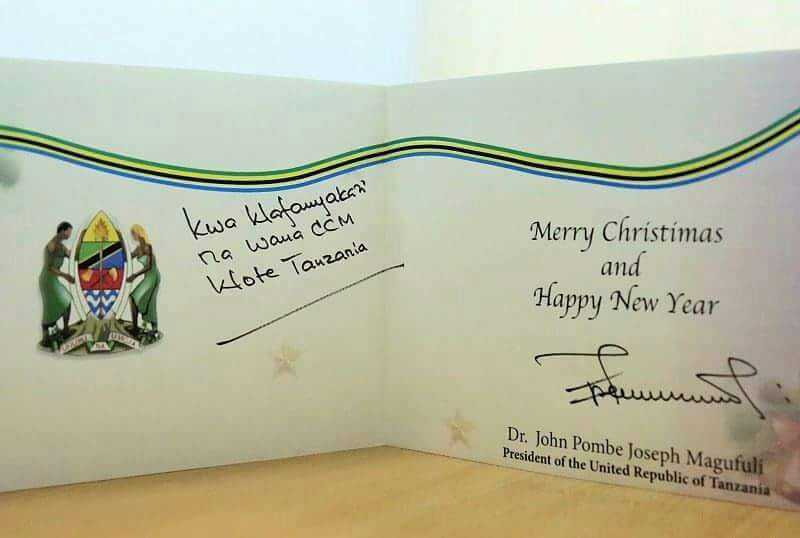 Kwa Wafanyakazi
na Wana CCM
Wote Tanzania
UHURU NA UMOJA
Merry Christimas
and
Happy New Year
Dr. John Pombe Joseph Magufuli
President of the United Republic of Tanzania